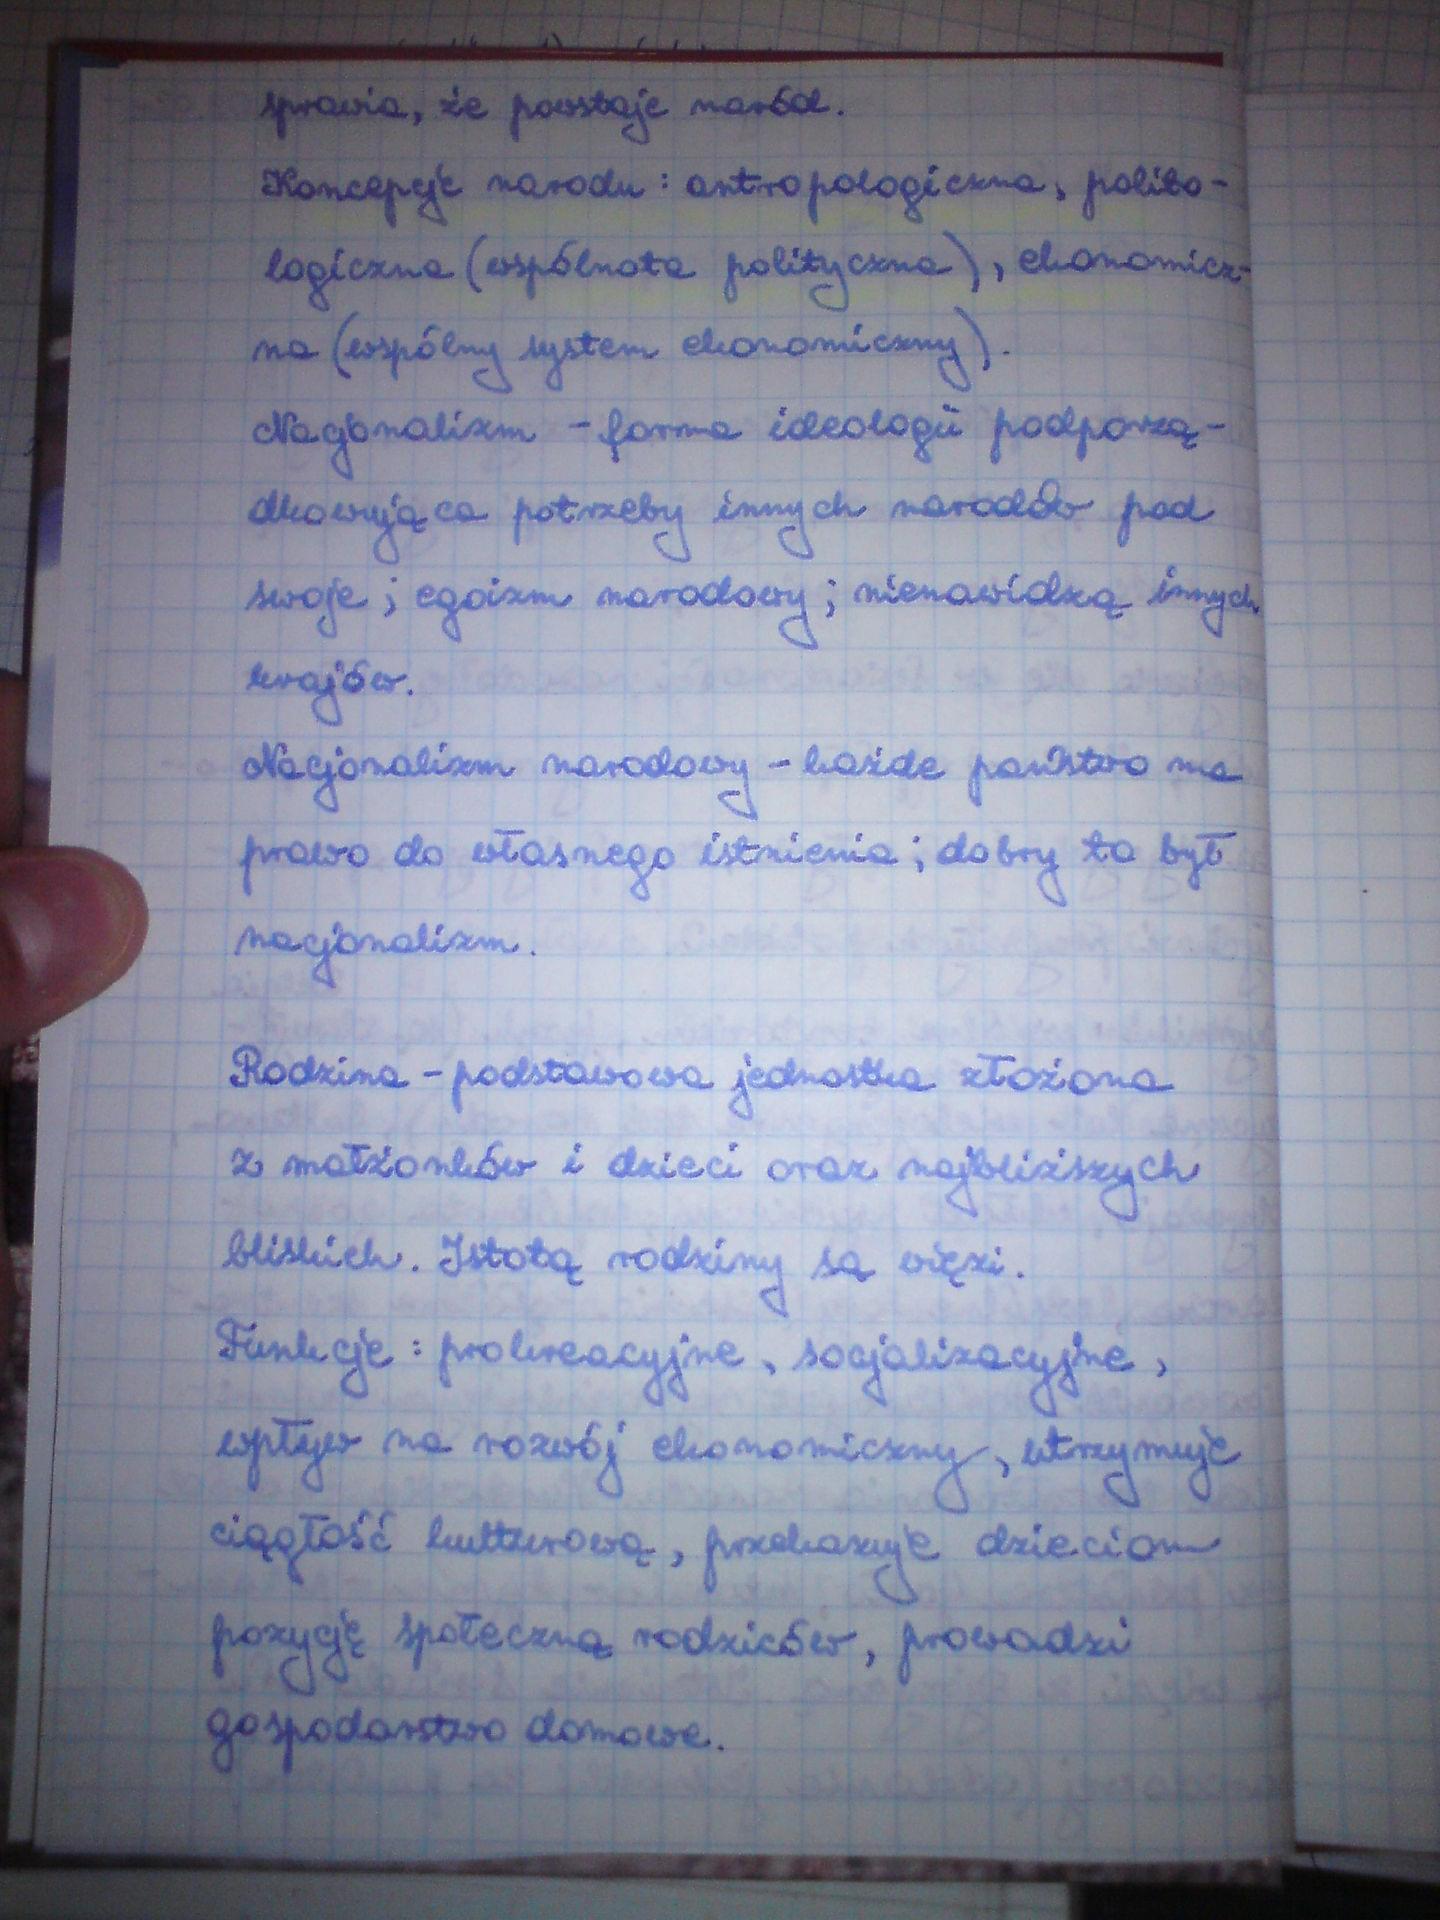 sprawia, że powstaje naród.
Koncepcje narodu: antropologiczna, polito-
logiczna (wspólnota polityczna), ekonomicz-
na (wspólny system ekonomiczny).
Nacjonalizm - forma ideologii podporzą-
dkowująca potrzeby innych narodów pod
swoje; egoizm narodowy; nienawidzą innych
krajów.
Nacjonalizm narodowy - każde państwo ma
prawo do własnego istnienia; dobry to był
nacjonalizm.
Rodzina - podstawowa jednostka złożona
z małżonków i dzieci oraz najbliższych
bliskich. Istotą rodziny są więzi.
Funkcje: prokreacyjne, socjalizacyjne,
wpływ na rozwój ekonomiczny, utrzymuje
ciągłość kulturową, przekazuje dzieciom
pozycję społeczną rodziców, prowadzi
gospodarstwo domowe.